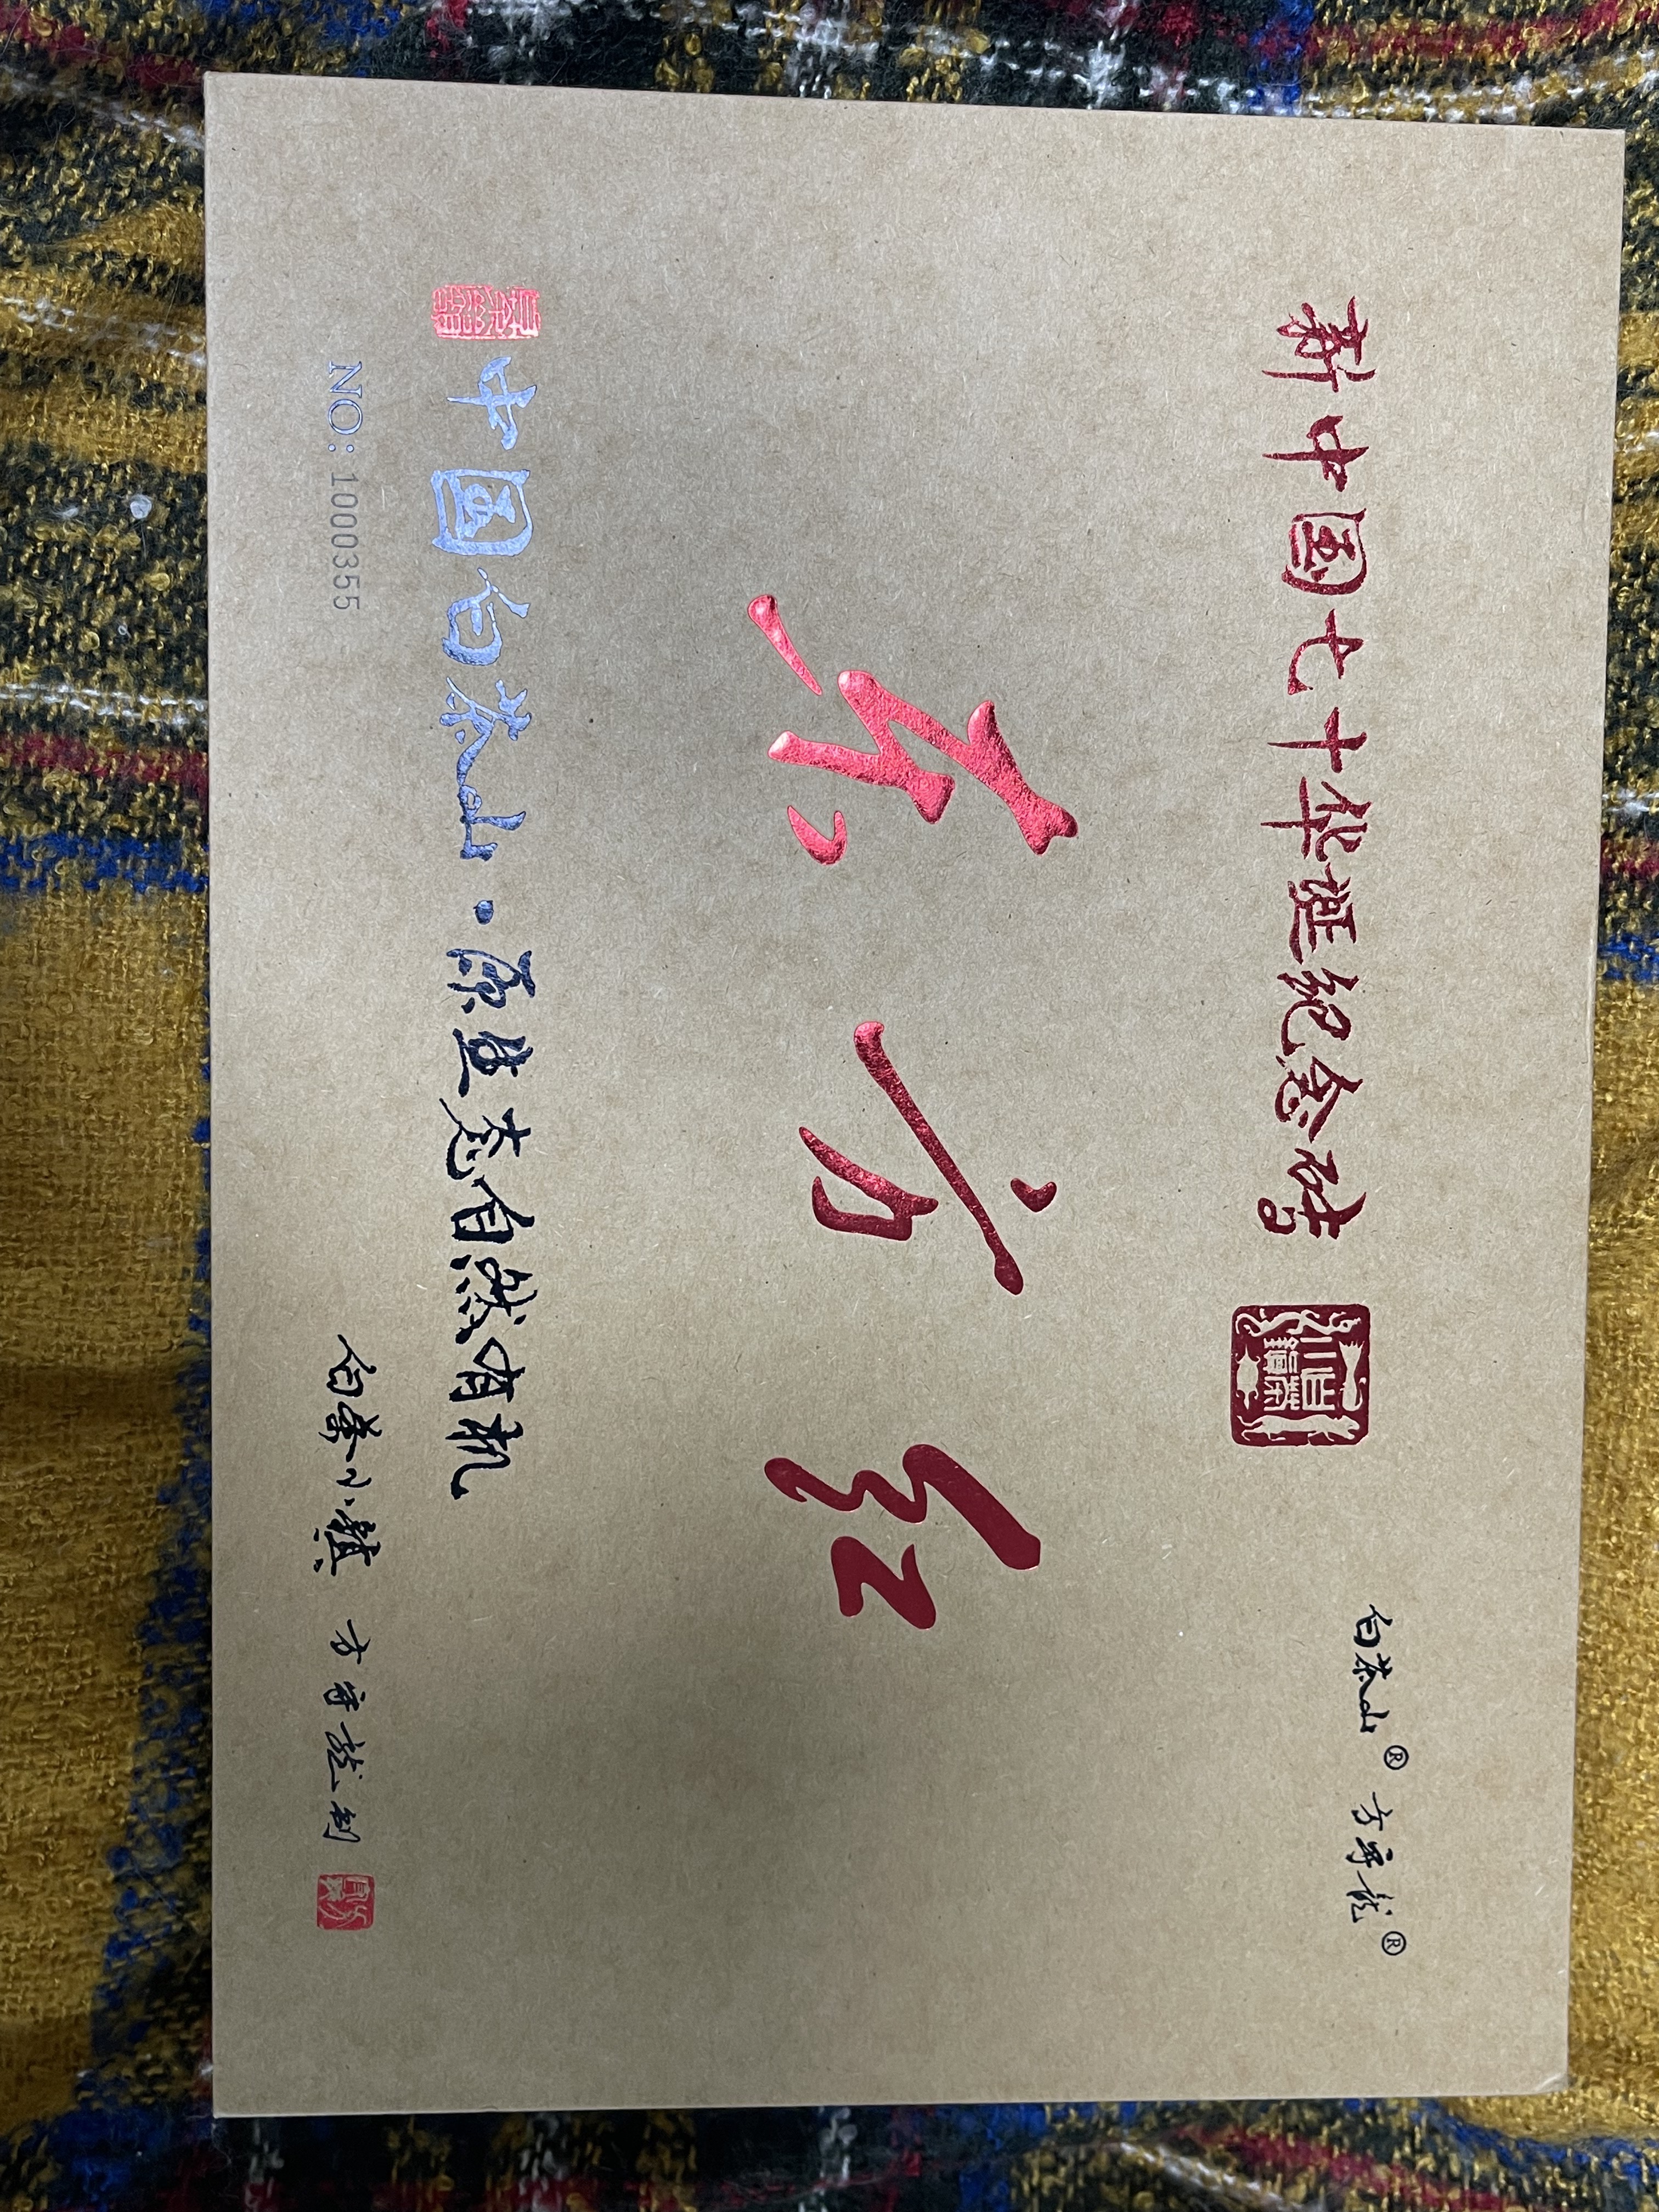 白茶山® 方守龙®
新中国七十华诞纪念砖
东方红
中國白茶山·原生态自然有机
NO: 1000355
白茶小镇 方守龙制